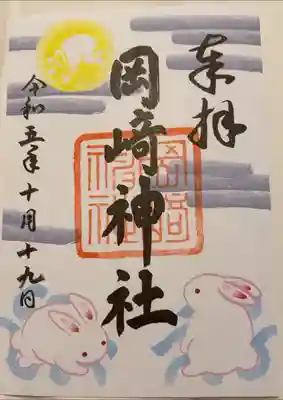 奉拝
岡﨑神社
岡﨑神社
令和五年十月十九日